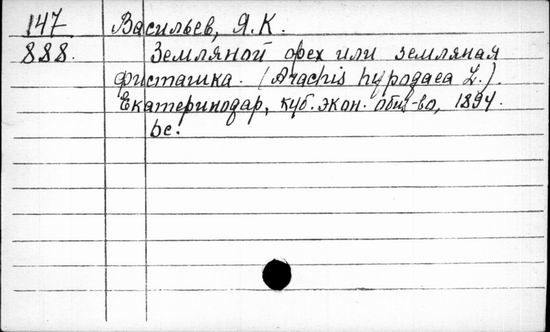 147 Васильев, Я. К.
888. Земляной орех или земляная
фисташка. (Arachis hypogaea L.)
Екатеринодар, куб. экон. общ-во, 1894.
вс.